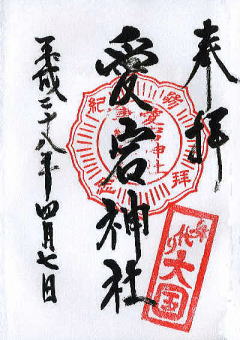 奉拝
愛宕神社
平成二十八年四月七日
愛宕神社
参拝
紀
大国